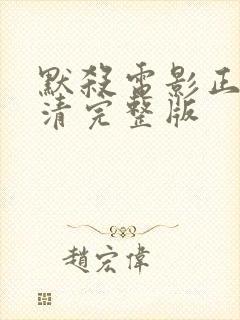 默殺電影正
清完整版
趙宏偉